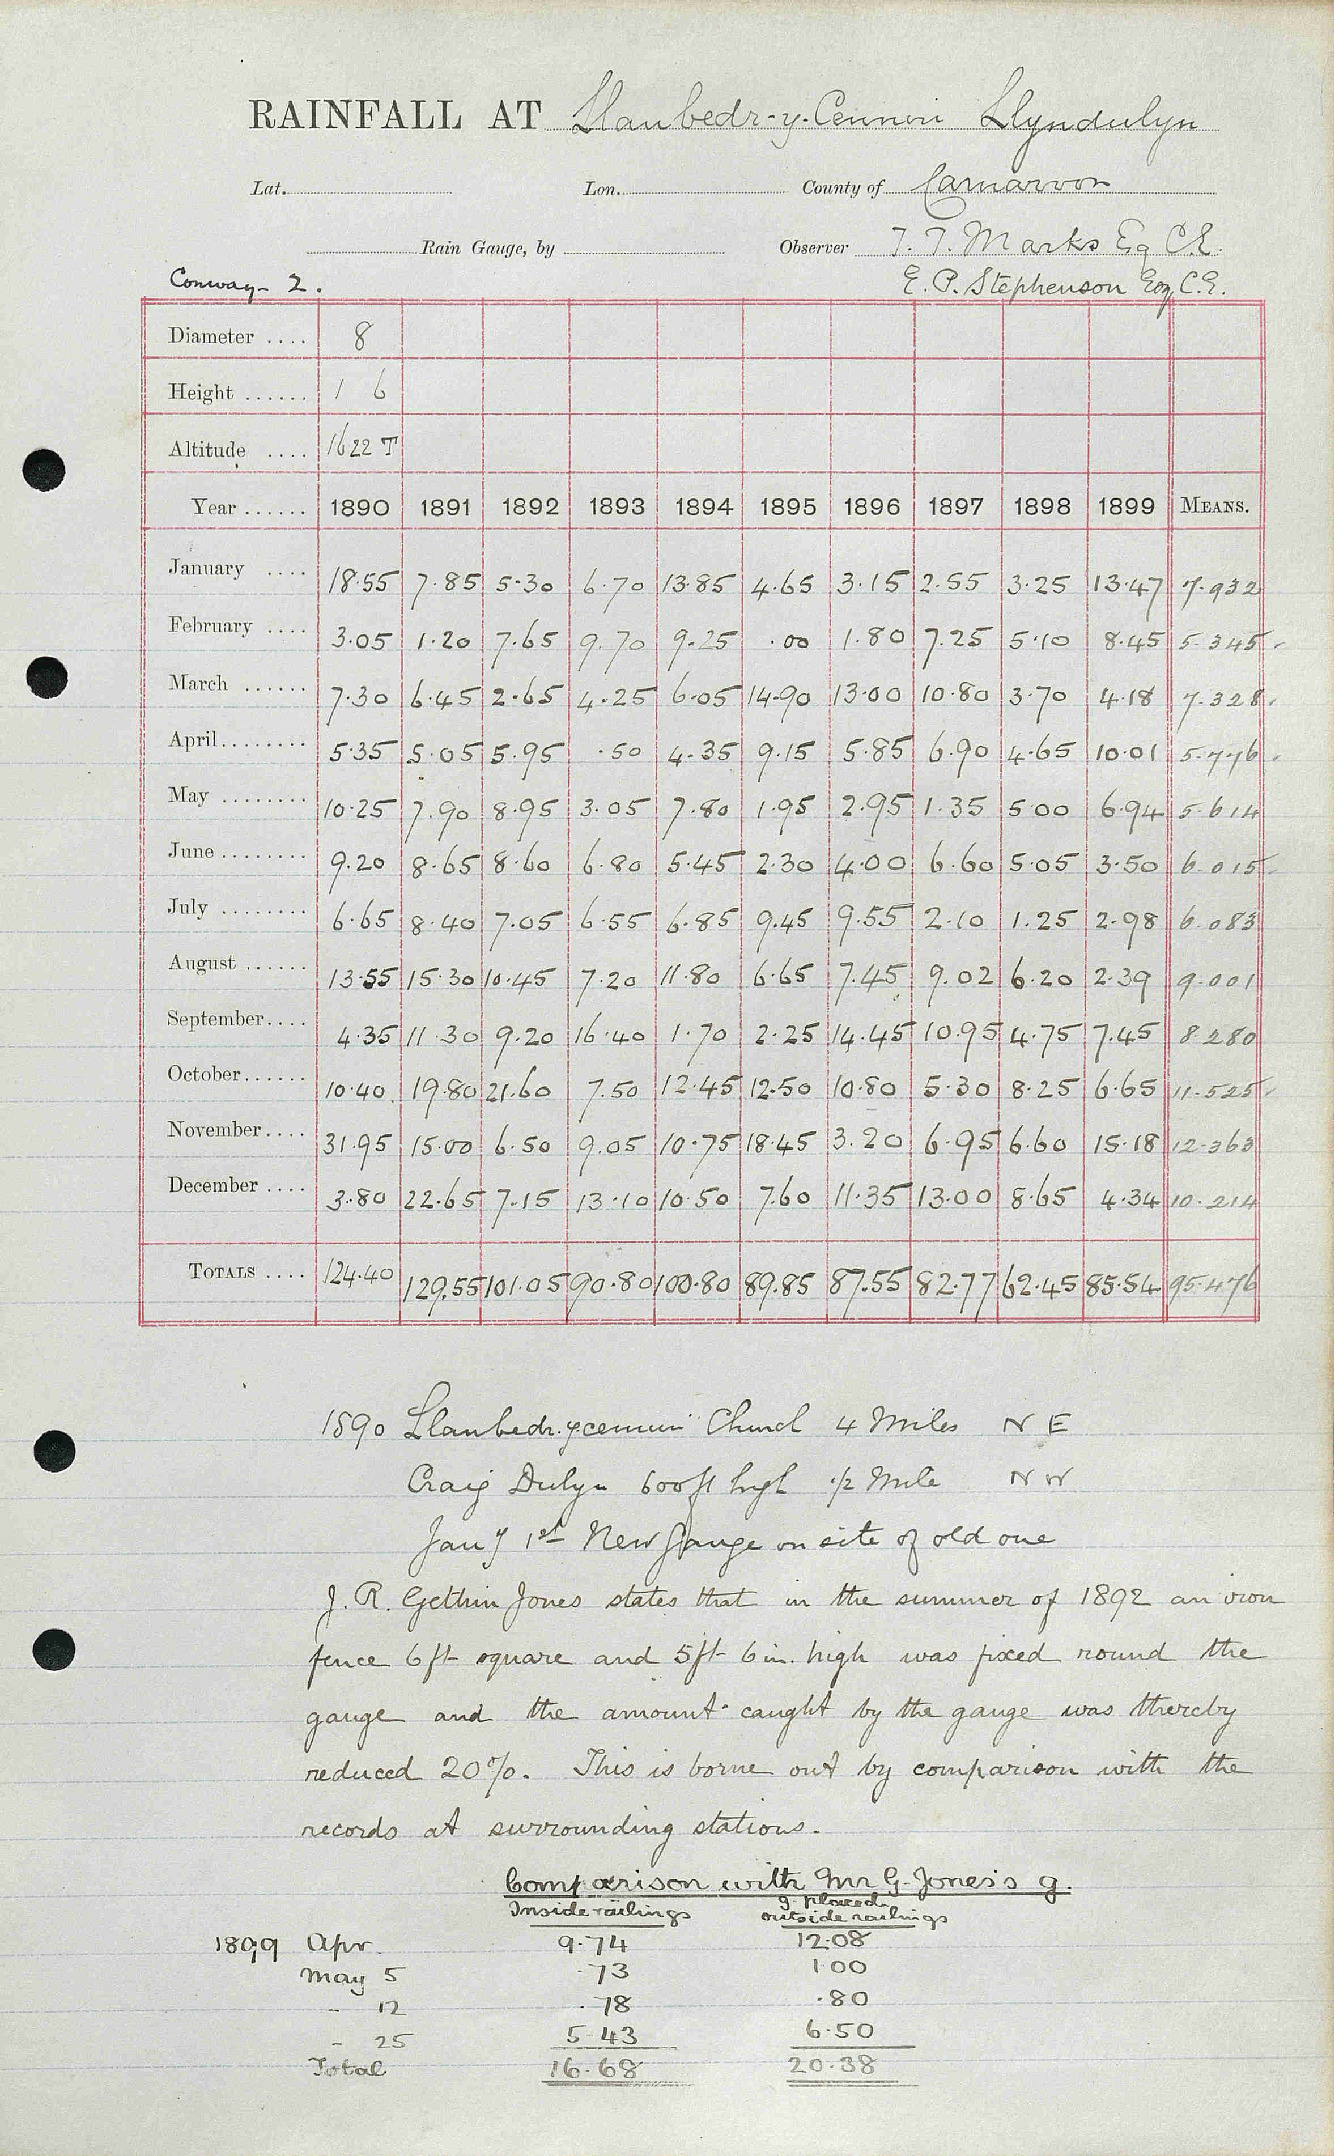 RAINFALL AT Llanbedr-y-Cennin Llyndulyn
Lat. Lon. County of Carnarvon
Rain Gauge, by Observer T. T. Marks Esq C.E.
Conway- 2. E. P. Stephenson Esq, C.E.
Diameter .... 8
Height ...... 1 6
Altitude .... 1622 T
Year ...... 1890 1891 1892 1893 1894 1895 1896 1897 1898 1899 MEANS.
January .... 18.55 7.85 5.30 6.70 13.85 4.65 3.15 2.55 3.25 13.47 7.932
February .... 3.05 1.20 7.65 9.70 9.25 .00 1.80 7.25 5.10 8.45 5.345
March ...... 7.30 6.45 2.65 4.25 6.05 14.90 13.00 10.80 3.70 4.18 7.328
April........ 5.35 5.05 5.95 .50 4.35 9.15 5.85 6.90 4.65 10.01 5.776
May ........ 10.25 7.90 8.95 3.05 7.80 1.95 2.95 1.35 5.00 6.94 5.614
June ........ 9.20 8.65 8.60 6.80 5.45 2.30 4.00 6.60 5.05 3.50 6.015
July ........ 6.65 8.40 7.05 6.55 6.85 9.45 9.55 2.10 1.25 2.98 6.083
August ...... 13.55 15.30 10.45 7.20 11.80 6.65 7.45 9.02 6.20 2.39 9.001
September.... 4.35 11.30 9.20 16.40 1.70 2.25 14.45 10.95 4.75 7.45 8.280
October...... 10.40 19.80 21.60 7.50 12.45 12.50 10.80 5.30 8.25 6.65 11.525
November.... 31.95 15.00 6.50 9.05 10.75 18.45 3.20 6.95 6.60 15.18 12.363
December .... 3.80 22.65 7.15 13.10 10.50 7.60 11.35 13.00 8.65 4.34 10.214
TOTALS .... 124.40 129.55 101.05 90.80 100.80 89.85 87.55 82.77 62.45 85.54 95.476
1890 Llanbedr.ycennin Church 4 Miles N E
Craig Dulyn 600ft high 1/2 Mile N W
Jany 1st New Gauge on site of old one
J. R. Gethin Jones states that in the summer of 1892 an iron
fence 6ft square and 5ft 6in. high was fixed round the
gauge and the amount caught by the gauge was thereby
reduced 20%. This is borne out by comparison with the
records at surrounding stations.
Comparison with Mr G. Jones's g.
Inside railings g. placed outside railings
1899 Apr. 9.74 12.08
May 5 .73 1.00
- 12 .78 .80
- 25 5.43 6.50
Total 16.68 20.38